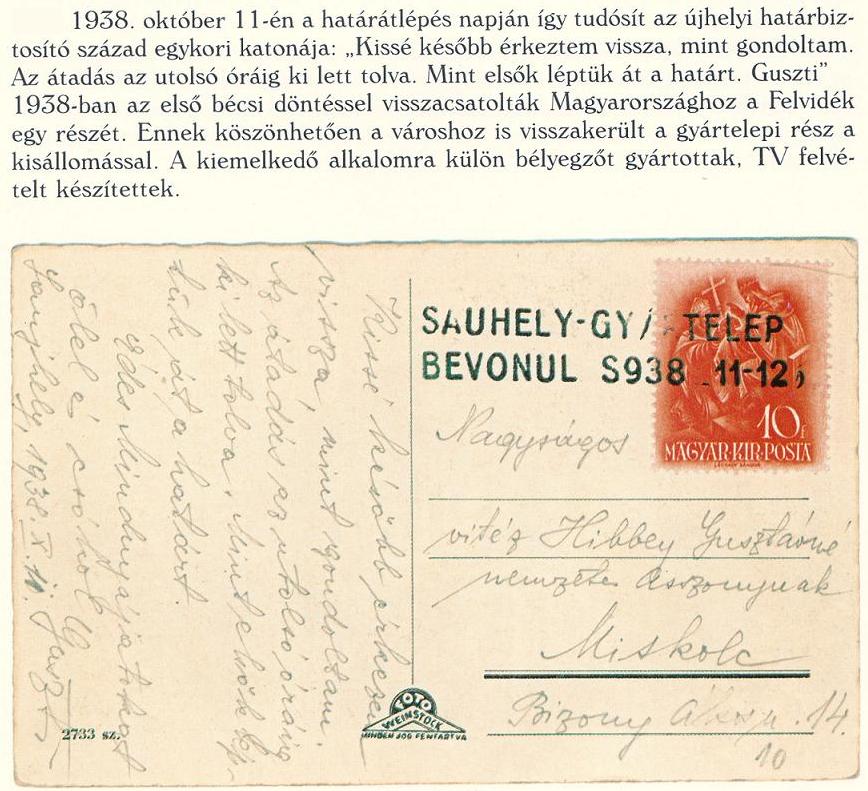 1938. október 11-én a határátlépés napján így tudósít az újhelyi határbiz-
tosító század egykori katonája: „Kissé később érkeztem vissza, mint gondoltam.
Az átadás az utolsó óráig ki lett tolva. Mint elsők léptük át a határt. Guszti”
1938-ban az első bécsi döntéssel visszacsatolták Magyarországhoz a Felvidék
egy részét. Ennek köszönhetően a városhoz is visszakerült a gyártelepi rész a
kisállomással. A kiemelkedő alkalomra külön bélyegzőt gyártottak, TV felvé-
telt készítettek.
Kissé később érkeztem
vissza, mint gondoltam.
Az átadás az utolsó óráig
ki lett tolva. Mint elsők lép-
tük át a határt.
Édes Mindnyájatokat
ölel és csókol
1938. X. 11. Guszti
2733 sz.
FOTO
WEINSTOCK
MINDEN JOG FENTARTVA
SAUHELY-GY TELEP
BEVONUL S938 11-12
10f
MAGYAR·KIR·POSTA
LÉGRÁDY SÁNDOR
Nagyságos
vitéz Hibbey Gusztávné
nemzetes Asszonynak
Miskolc
Bizony 14.
10